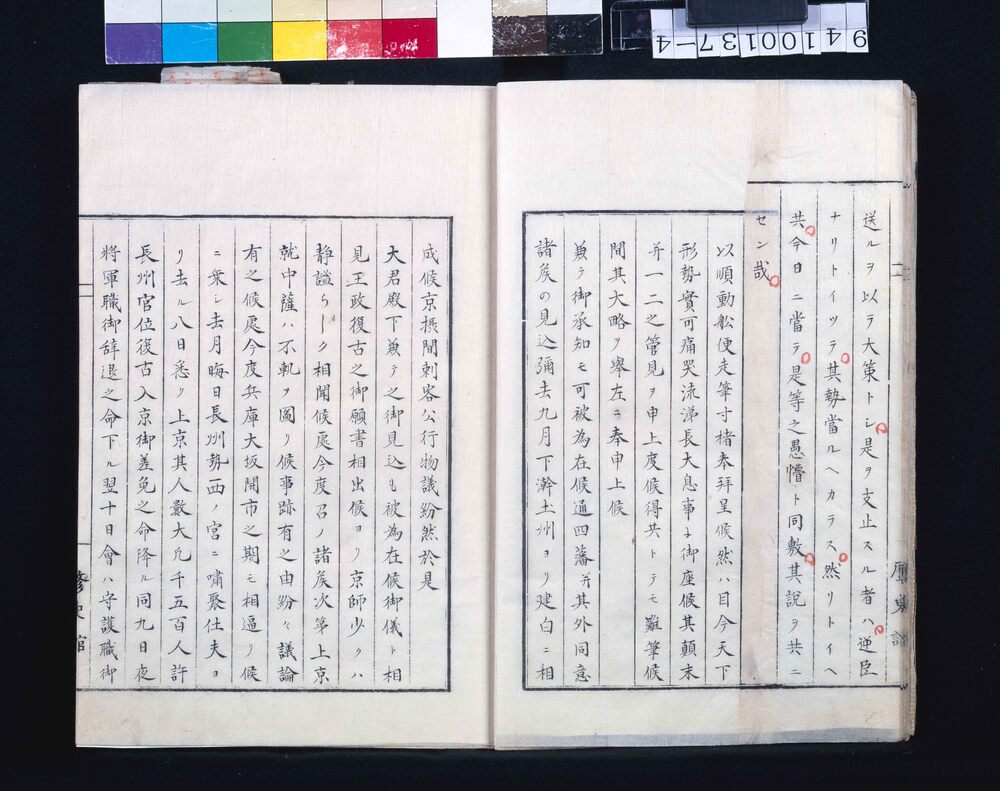 送ルヲ以ラ大策トシ是ヲ支止スル者ハ逆臣
ナリトイツテ其執當ルヘカラス然リトイヘ
共今日ニ當テ是等之愚懵ト同敷其説ヲ共ニ
セン哉
以順動舩便走筆寸楮奉拜呈候然ハ目今天下
形勢實可痛哭流涕長大息事ト御座候其顛末
并一二之管見ヲ申上度候得共トテモ難筆候
間其大略ヲ擧左ニ奉申上候
兼ラ御承知モ可被為在候通四藩并其外同意
諸矦の見込彌去九月下澣土州ヨリ建白ニ相
成候京摂間刺客公行物議紛然於是
大君殿下兼テ之御見込も被為在候御儀ト相
見王政復古之御願書相出候ヨリ京師少クハ
静謐らしク相聞候處今度召ノ諸矦次第上京
就中薩ハ不軌ヲ圖リ候事跡有之由紛々議論
有之候處今度兵庫大坂開市之期モ相逼リ候
ニ乗シ去月晦日長州勢西ノ宮ニ嘯聚仕夫ヨ
リ去ル八日悉ク上京其人最大凡千五百人許
長州官位復古入京御差免之命降ル同九日夜
將軍職御辞退之命下ル翌十日會ハ守護職御
94 100137-4